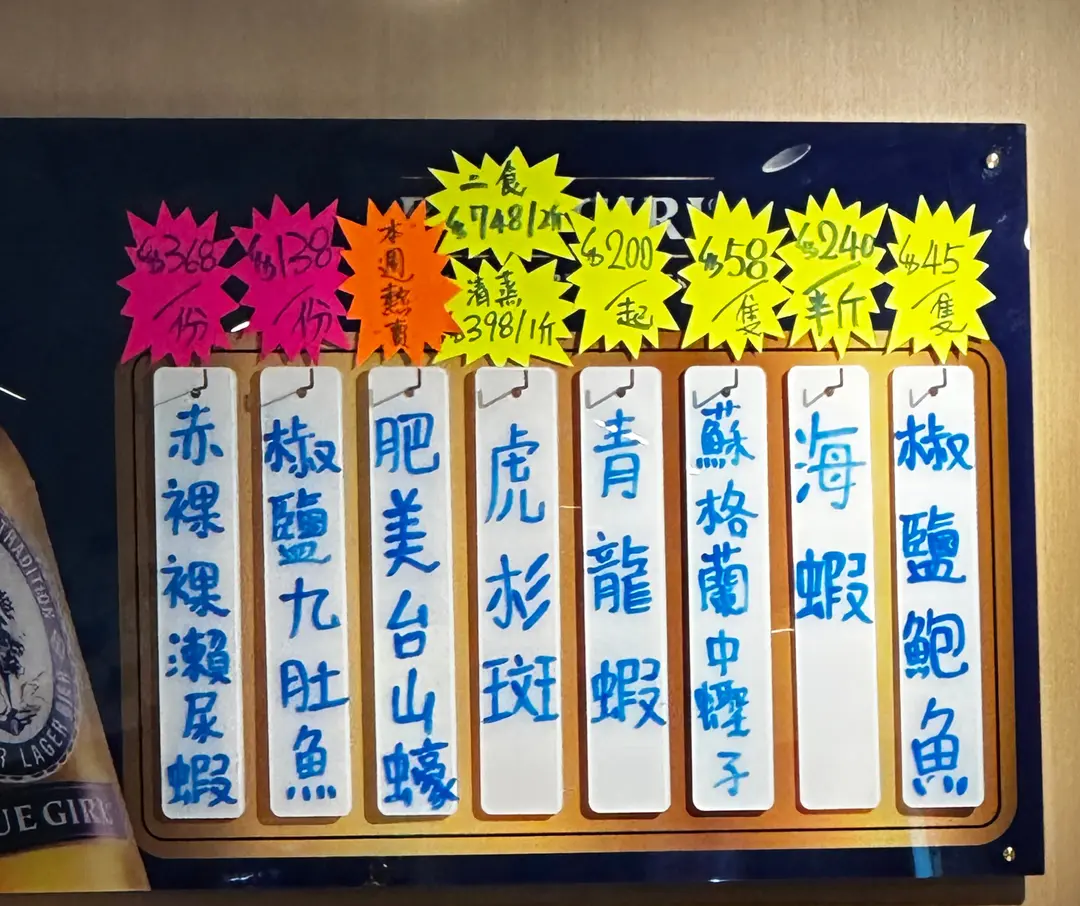 二食
$748/2斤
$368
/份
$138
/份
本週熱賣
清蒸
$398/1斤
$200
/起
$58
/隻
$240
/半斤
$45
/隻
赤裸裸瀨尿蝦
椒鹽九肚魚
肥美台山蠔
虎杉斑
青龍蝦
蘇格蘭中蟶子
海蝦
椒鹽鮑魚
TRADITION
LAGER BIER
UE GIRL